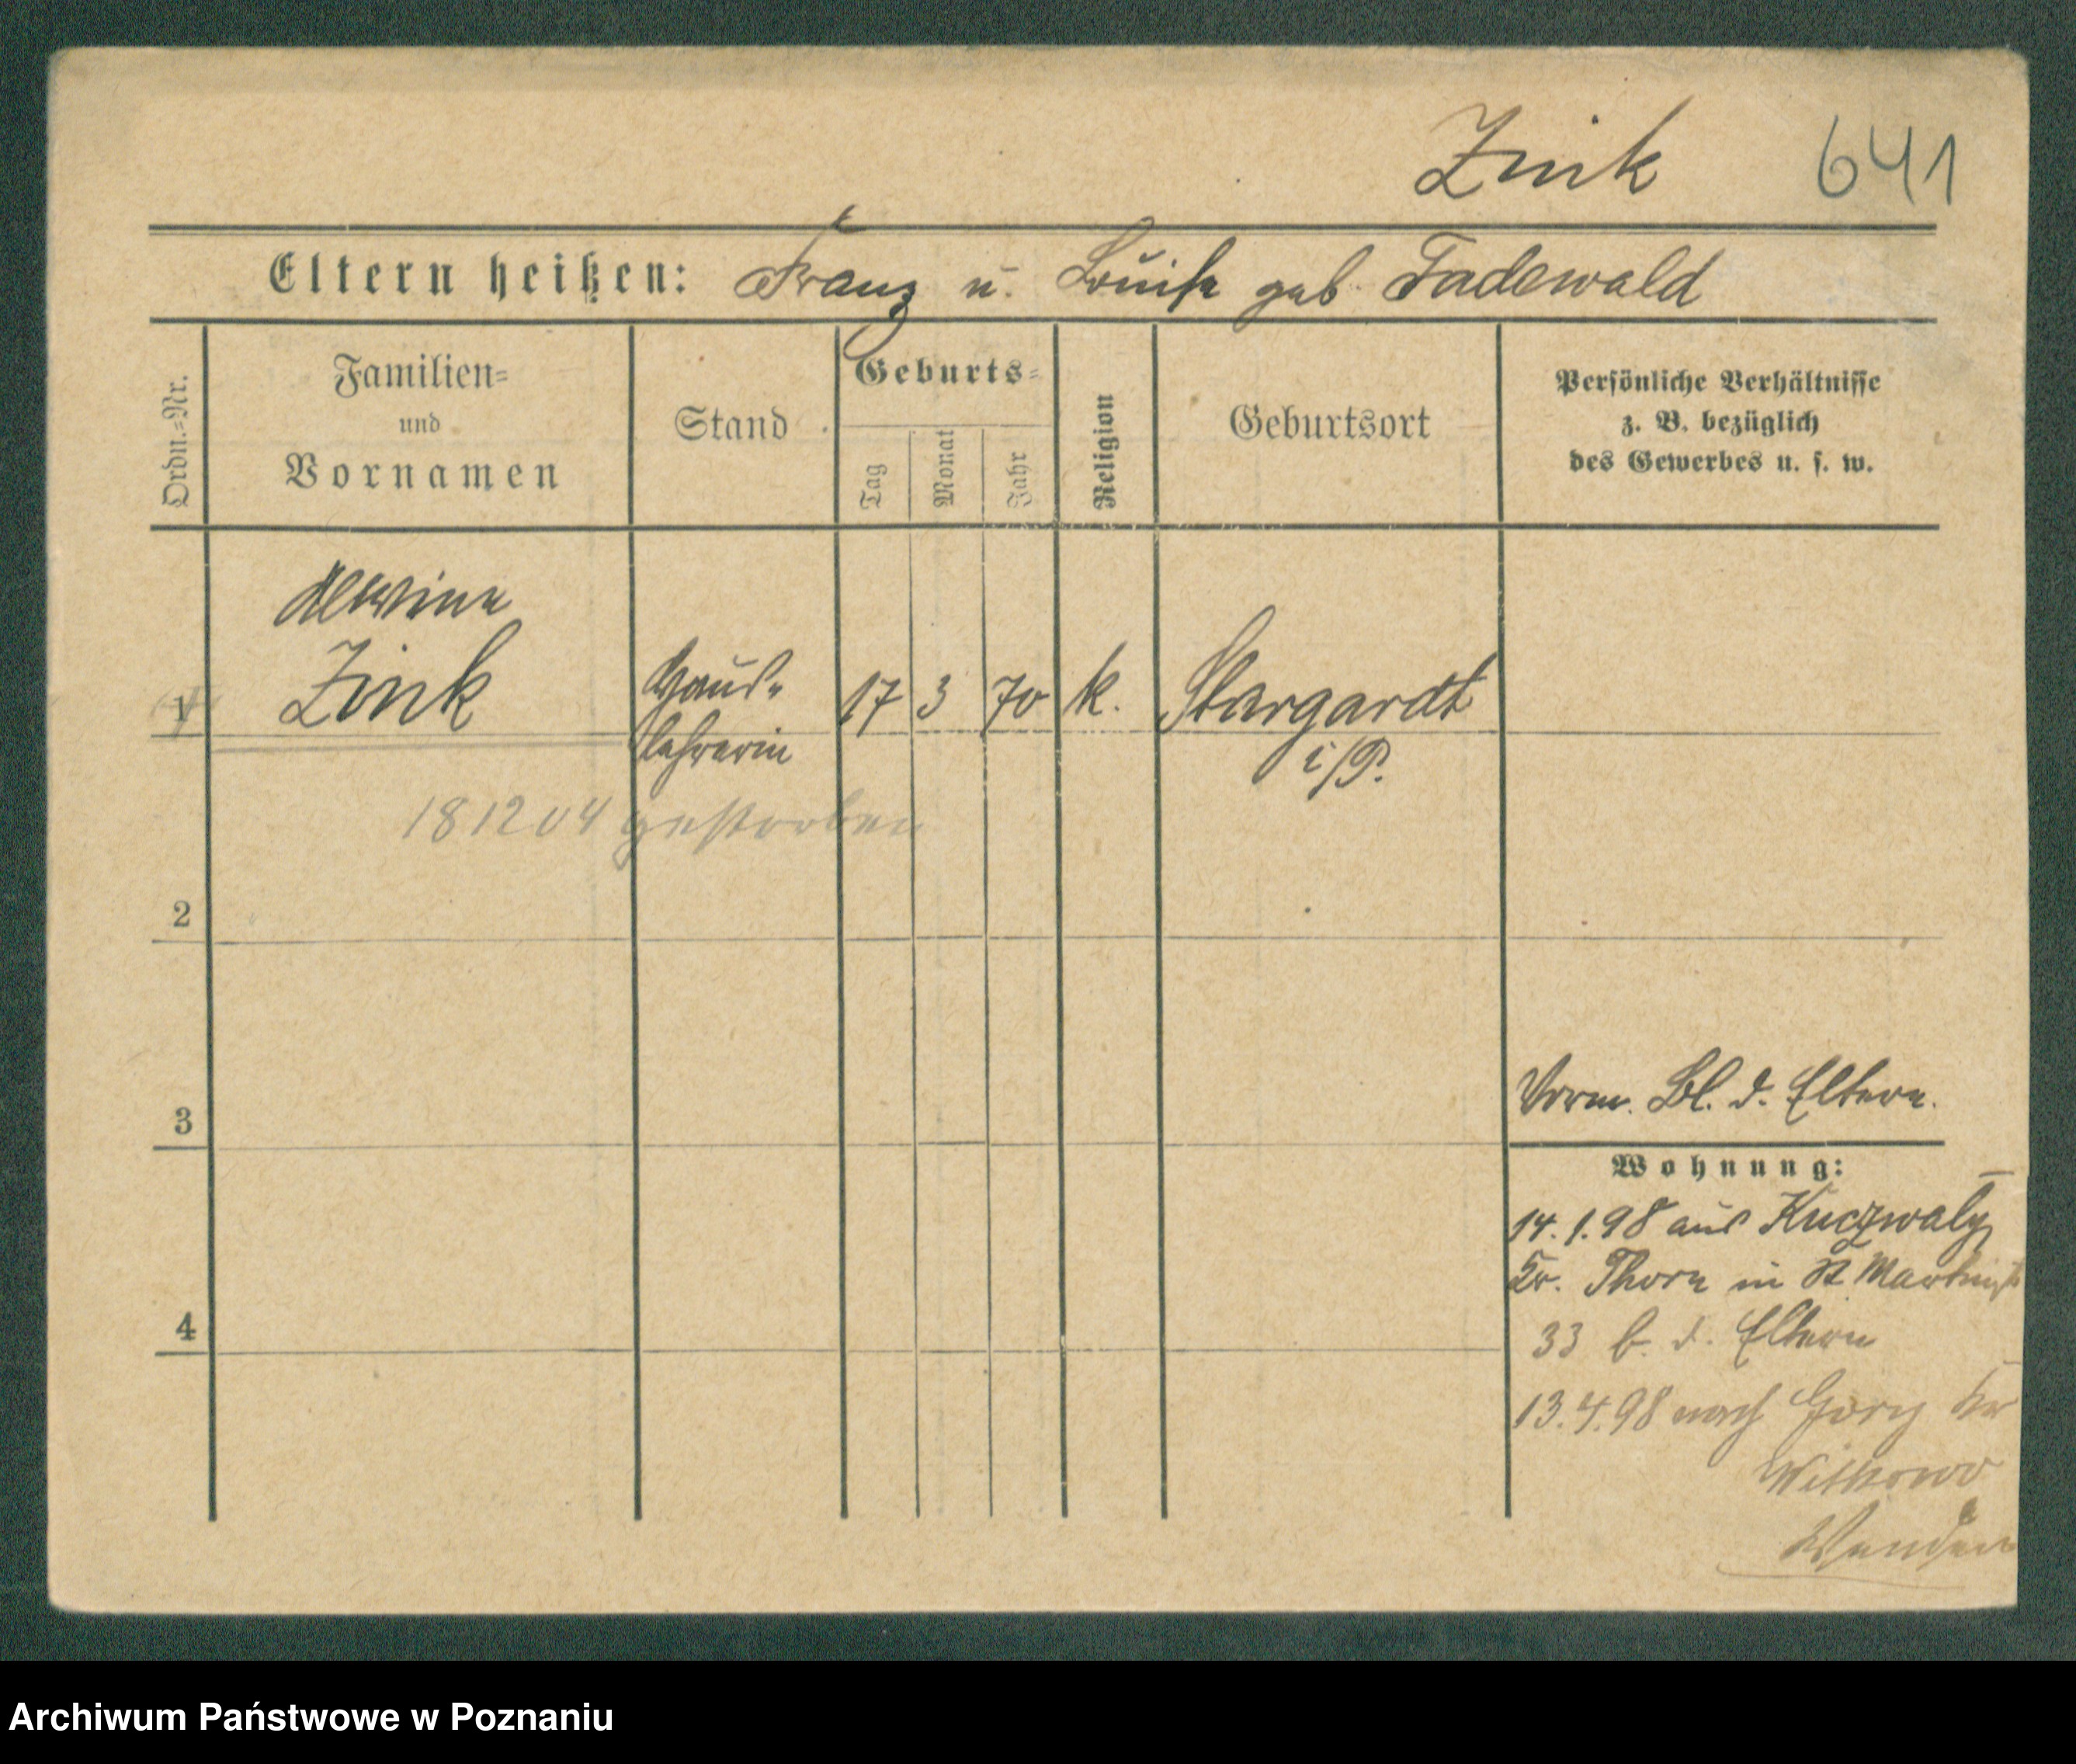 Zink 641
Eltern heißen: Franz u. Louise geb. Tadewald
Ordn.=Nr.
Familien=
und
Vornamen
Stand
Geburts=
Tag
Monat
Jahr
Religion
Geburtsort
Persönliche Verhältnisse
z. B. bezüglich
des Gewerbes u. s. w.
Alwine
1 Zink Haus- 17 3 70 k. Stargardt
lehrerin i/P.
181204 gestorben
2
3
Vorm. Bl. d. Eltern.
Wohnung:
14.1.98 aus Kuczwaly
Kr. Thorn in St Martinst
4
33 b. d. Eltern
13.4.98 nach Gory Kr
Witkowo
Wenden
Archiwum Państwowe w Poznaniu